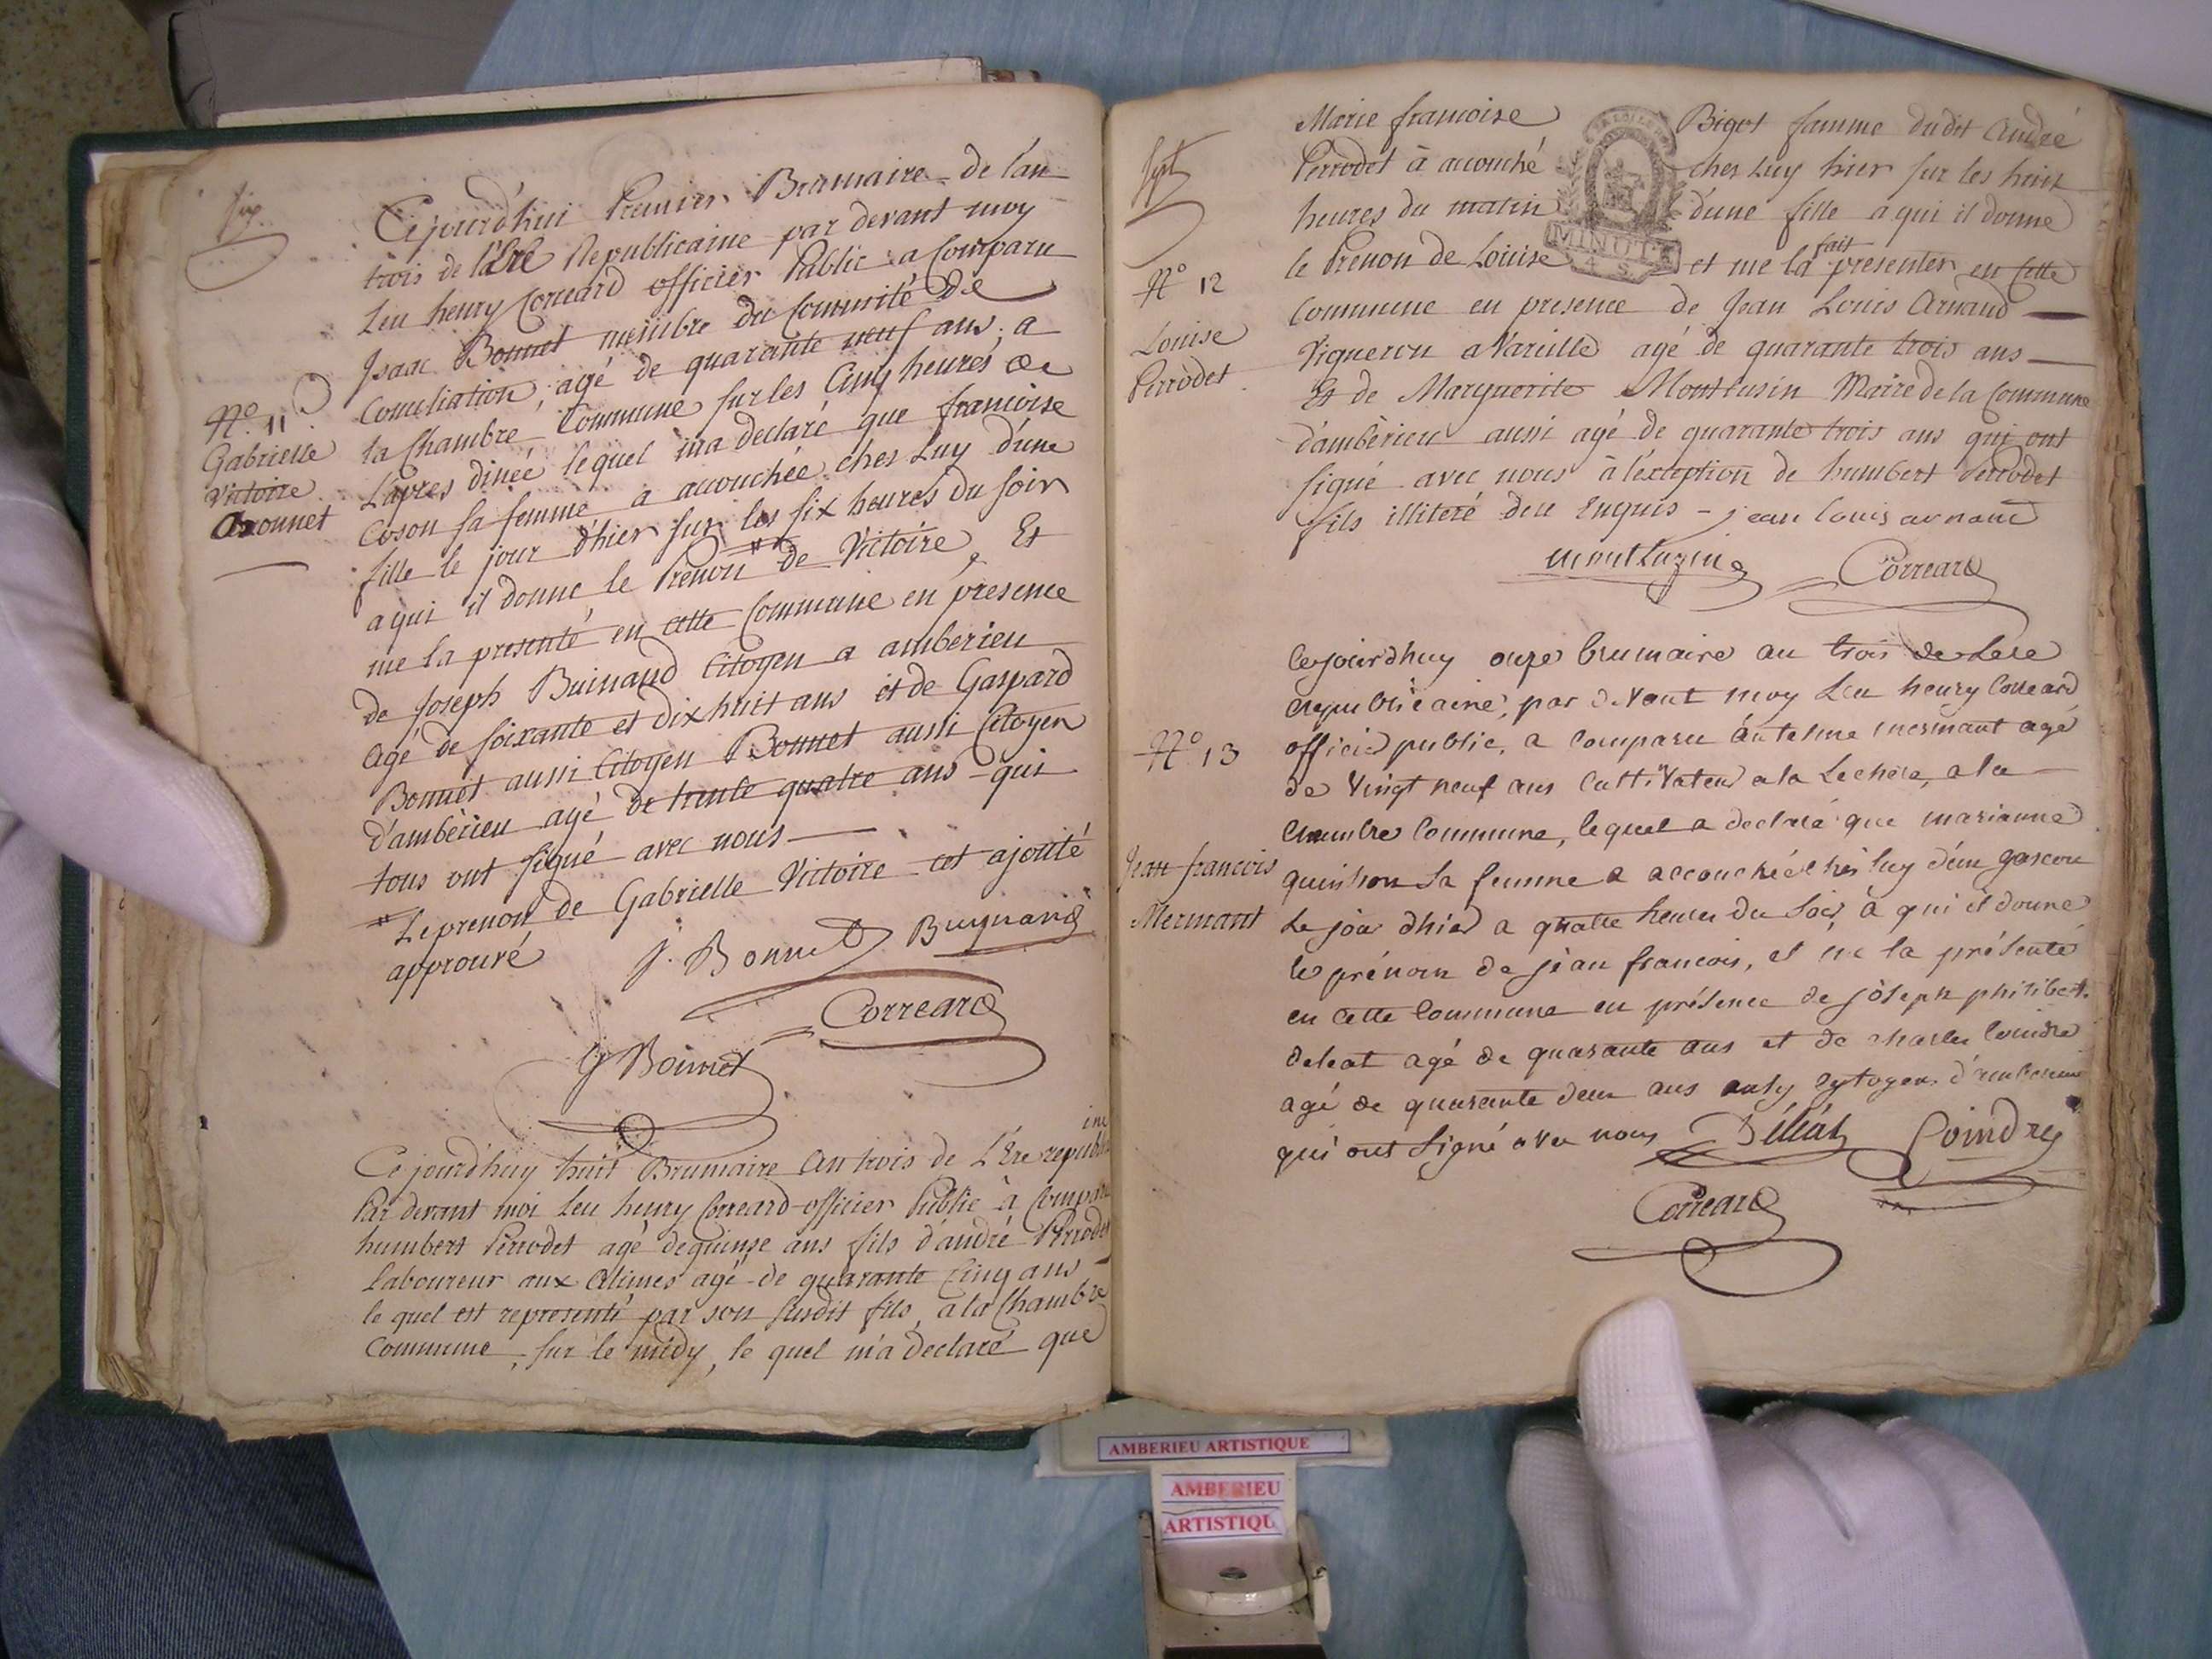 six
Cejourd'hui Premier Brumaire de l'an
trois de l'Ere Republicaine par devant moy
Leu henry Correard officier Public a Comparu
Isaac Bonnet membre du Committé de
Conciliation, agé de quarante neuf ans, a
la Chambre Commune sur les Cinq heures de
Lapres dineé lequel m'a declaré que francoise
Coson sa femme a accouchée ches Luy d'une
fille le jour d'hier sur les six heures du soir
a qui il donne le Prenon # de Victoire, Et
me la presenté en cette Commune en presence
de Joseph Buinand Citoyen a amberieu
agé de soixante et dix huit ans et de Gaspard
Bonnet aussi Citoyen Bonnet aussi Citoyen
d'amberieu agé de trente quatre ans qui
tous ont signé avec nous
# Le prenon de Gabrielle Victoire est ajouté
approuvé
J. Bonnet Buynand
Correard
G Bonnet
N° 11
Gabrielle
Victoire
Bonnet
Ce jourd'huy huit Brumaire An trois de L'Ere republi
ine
Par devant moi Leu henry Correard officier Public à Comparu
humbert Perrodet agé de quinze ans fils d'andré Perrodet
Laboureur aux Alimes agé de quarante Cinq ans
le quel est representé par son susdit fils, a la Chambre
Commune, sur le midy, le quel m'a declaré que
sept
Marie francoise Bigot famme dudit André
Perrodet à accouché ches Luy hier sur les huit
heures du matin d'une fille a qui il donne
le Prenon de Louise et me la fait presenter en Cette
Commune en presence de Jean Louis Arnaud
Vigneron a Vareille agé de quarante trois ans
Et de Marguerite Montlusin Maire de la Commune
d'amberieu aussi agé de quarante trois ans qui ont
signé avec nous à l'exception de humbert Perrodet
fils illiteré deu Enquis - jean louis arnaud
montluzin Correard
MINUTE
4 S.
N° 12
Louise
Perrodet
Cejourdhuy onze brumaire an trois de Lere
republicaine, par devant moy Leu henry Correard
officier public, a comparu antelme mermant agé
de vingt neuf ans Cultivateur a la Lechere, a la
Chambre Commune, lequel a declaré que marianne
quinson sa femme a accouchée ches luy d'un garcon
Le jour dhier a quatre heures du soir, à qui il donne
le prénom de jean francois, et me la présenté
en cette Commune en présence de joseph philibert
deleat agé de quarante ans et de charles Coindre
agé de quarante deux ans ausy cytoyens d'amberieu
qui ont signé avec nous Déléat Coindre
Correard
N° 13
Jean francois
Mermant
AMBERIEU ARTISTIQUE
AMBERIEU
ARTISTIQU